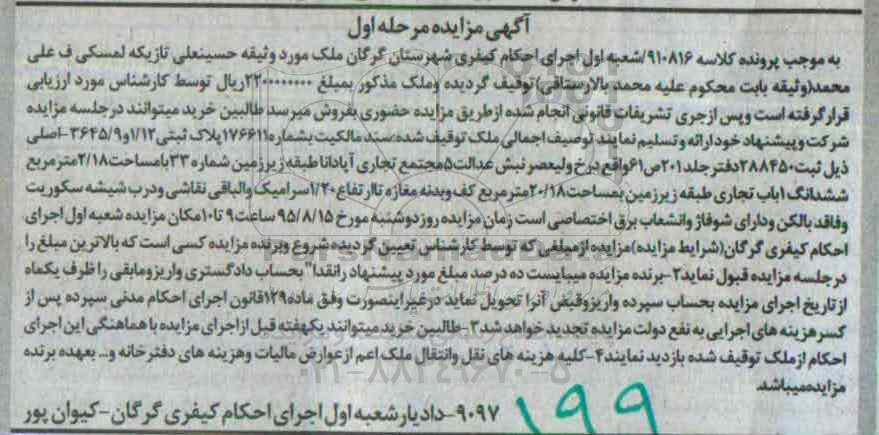 آگهی مزایده مرحله اول
به موجب پرونده کلاسه ۹۱۰۸۱۶/شعبه اول اجرای احکام کیفری شهرستان گرگان ملک مورد وثیقه حسینعلی تازیکه لمسکی ف علی
محمد(وثیقه بابت محکوم علیه محمد بالارستاقی)توقیف گردیده وملک مذکور بمبلغ ۲۲۰۰۰۰۰۰۰۰ریال توسط کارشناس مورد ارزیابی
قرار گرفته است و پس از جری تشریفات قانونی انجام شده از طریق مزایده حضوری بفروش میرسد طالبین خرید میتوانند در جلسه مزایده
شرکت و پیشنهاد خود ارائه و تسلیم نمایند توصیف اجمالی ملک توقیف شده:سند مالکیت بشماره ۱۷۶۶۱۱پلاک ثبتی ۱/۱۲و۳۶۴۵/۹-اصلی
ذیل ثبت۲۸۸۴۵۰دفتر جلد۲۰۱ص۶۱واقع درخ ولیعصر نبش عدالت۵مجتمع تجاری آپادانا طبقه زیرزمین شماره ۳۳بامساحت۲/۱۸مترمربع
ششدانگ ۱باب تجاری طبقه زیرزمین بمساحت۲۰/۱۸مترمربع کف وبدنه مغازه تاارتفاع۱/۲۰سرامیک والباقی نقاشی ودرب شیشه سکوریت
وفاقد بالکن ودارای شوفاژ وانشعاب برق اختصاصی است زمان مزایده روز دوشنبه مورخ ۹۵/۸/۱۵ ساعت۹ تا۱۰مکان مزایده شعبه اول اجرای
احکام کیفری گرگان(شرایط مزایده)مزایده ازمبلغی که توسط کارشناس تعیین گردیده شروع وبرنده مزایده کسی است که بالاترین مبلغ را
در جلسه مزایده قبول نماید۲-برنده مزایده میبایست ده درصد مبلغ مورد پیشنهاد رانقدا" بحساب دادگستری واریزومابقی را ظرف یکماه
از تاریخ اجرای مزایده بحساب سپرده واریزوقبض آنرا تحویل نماید درغیراینصورت وفق ماده۱۲۹قانون اجرای احکام مدنی سپرده پس از
کسر هزینه های اجرایی به نفع دولت مزایده تجدید خواهد شد۳-طالبین خرید میتوانند یکهفته قبل ازاجرای مزایده با هماهنگی این اجرای
احکام از ملک توقیف شده بازدید نمایند۴-کلیه هزینه های نقل وانتقال ملک اعم از عوارض مالیات وهزینه های دفترخانه و... بعهده برنده
مزایده میباشد
۹۰۹۷-دادیار شعبه اول اجرای احکام کیفری گرگان-کیوان پور
۱۹۹
ParsNamadData
۰۲۱-۸۸۳۴۹۶۷۰-۵